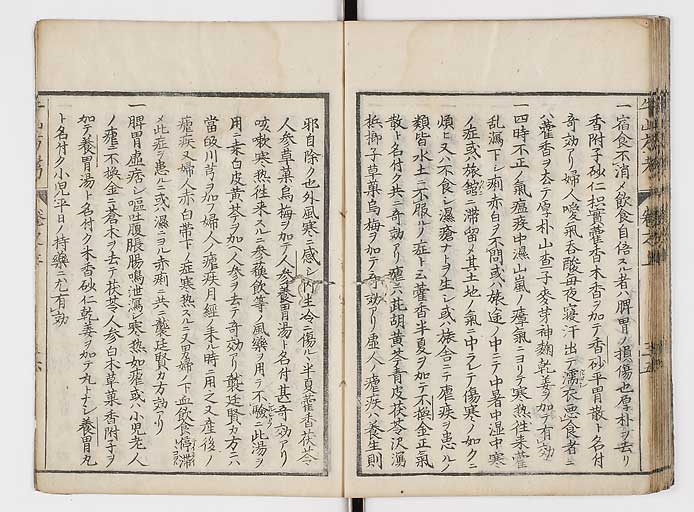 一宿食不消〆飲食自倍スル者ハ脾胃ノ損傷也厚朴ヲ去リ
香附子砂仁枳實藿香木香ヲ加テ香砂平胃散ト名付
奇効アリ婦人噯氣呑酸毎夜寢汗出テ濡衣悪食者ニ
藿香ヲ去テ厚朴山査子麥芽神麹乾姜ヲ加テ有効
一四時不正ノ氣瘟疫中濕山嵐ノ瘴氣ニヨリテ寒熱徃来霍
乱瀉下シ痢赤白ヲ不問或ハ旅途ノ中ニテ中暑中湿中寒
ノ症或ハ旅舘ニ滞留ノ其土地ノ氣ニ中ラレテ傷寒ノ如クニ
煩ヒ又ハ不食シ濕瘡ナトヲ生シ或ハ旅舎ニテ瘧疾ヲ患ルノ
類皆水土ニ不服ノ症ト云藿香半夏ヲ加テ不換金正氣
散ト名付ク共ニ奇効アリ瘧ニハ此胡黄芩青皮茯苓沢瀉
梹榔子草菓烏梅ヲ加テ奇効アリ虚人ノ瘧疾ハ養生則
邪自除ク也外風寒ニ感シ内生冷ニ傷ル半夏藿香茯苓
人参草菓烏梅ヲ加テ人参養胃湯ト名付甚奇効アリ
咳嗽寒熱徃来スルニ参蘓飲等ノ風藥ヲ用テ不驗ニ此湯ヲ
用ニ桒白皮黄芩ヲ加人参ヲ去テ奇効アリ龔廷賢カ方ニハ
當皈川芎ヲ加フ婦人ノ瘧疾月經ノ来ル時ニ用之又産後ノ
瘧疾又婦人赤白帯下ノ症寒熱スルニ又男婦カ下血飲食停滞
〆此症ヲ患ルニ或ハ濕ニヨル赤痢ニ共ニ龔廷賢カ方効アリ
一脾胃虚痞シ嘔吐腹脹腸鳴泄瀉シ寒熱如瘧或ハ小児老人
ノ瘧ニ不換金ニ蒼木ヲ去テ茯苓人参白木草菓香附子ヲ
加テ養胃湯ト名付ク木香砂仁乾姜ヲ加テ丸トナシ養胃丸
ト名付ク小児平日ノ持藥ニ尤有効